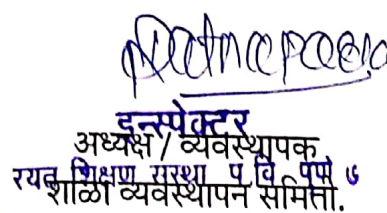 इन्स्पेक्टर
अध्यक्ष / व्यवस्थापक
रयत शिक्षण संस्था प वि पुणे ७
शाळा व्यवस्थापन समिती.